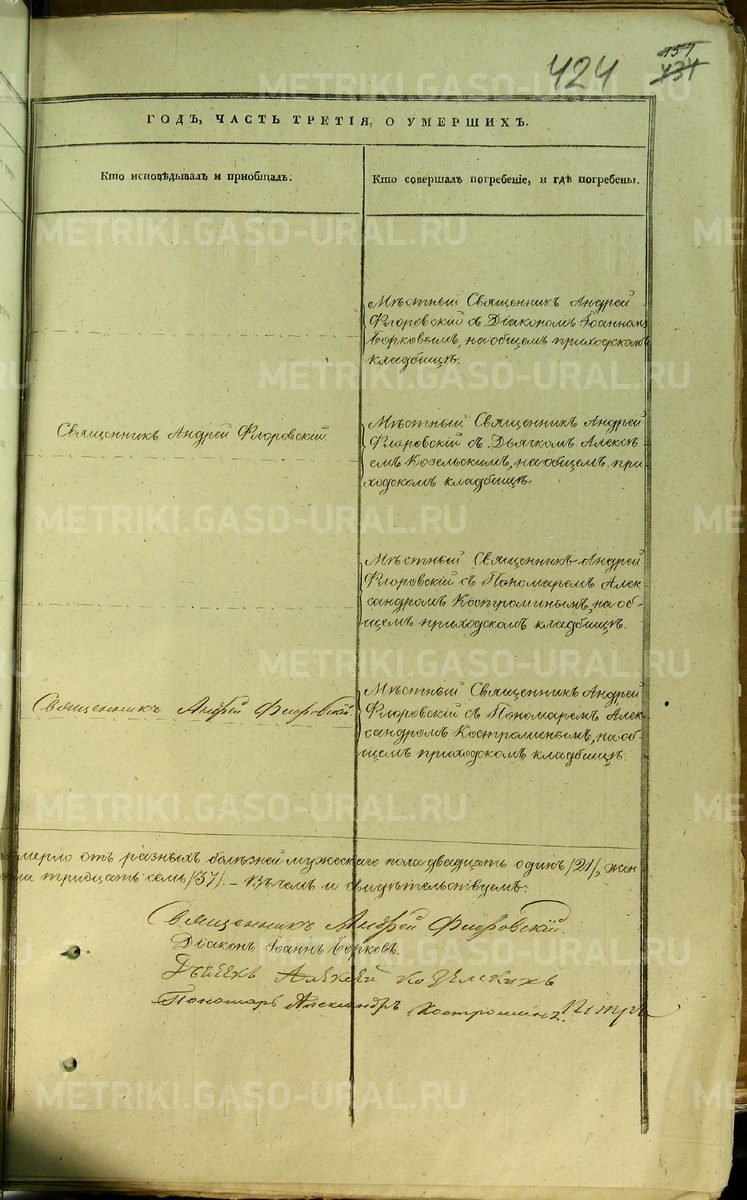 424
157
431
ГОДЪ, ЧАСТЬ ТРЕТІЯ, О УМЕРШИХЪ.
Кто исповѣдывалъ и пріобщалъ.
Кто совершалъ погребеніе, и гдѣ погребены.
Мѣстный Священникъ Андрей
Флоровскій съ Діакономъ Іоанномъ
Борковымъ, на общемъ приходскомъ
кладбищѣ.
Священникъ Андрей Флоровскій.
Мѣстный Священникъ Андрей
Флоровскій съ Дьячкомъ Алексѣ-
емъ Козельскимъ, на общемъ при-
ходскомъ кладбищѣ.
Мѣстный Священникъ Андрей
Флоровскій съ Пономаремъ Алек-
сандромъ Костроминымъ, на об-
щемъ приходскомъ кладбищѣ.
Священникъ Андрей Флоровскій.
Мѣстный Священникъ Андрей
Флоровскій съ Пономаремъ Алек-
сандромъ Костроминымъ, на об-
щемъ приходскомъ кладбищѣ.
мерло отъ разныхъ болѣзней мужескаго пола двадцать одинъ /21/, жен
ла тридцать семь /37/. – Въ чемъ и свидѣтельствуемъ:
Священникъ Андрей Флоровскій.
Діаконъ Іоаннъ Борковъ.
Алексей
Пономарь Александръ Костроминъ.
METRIKI.GASO-URAL.RU